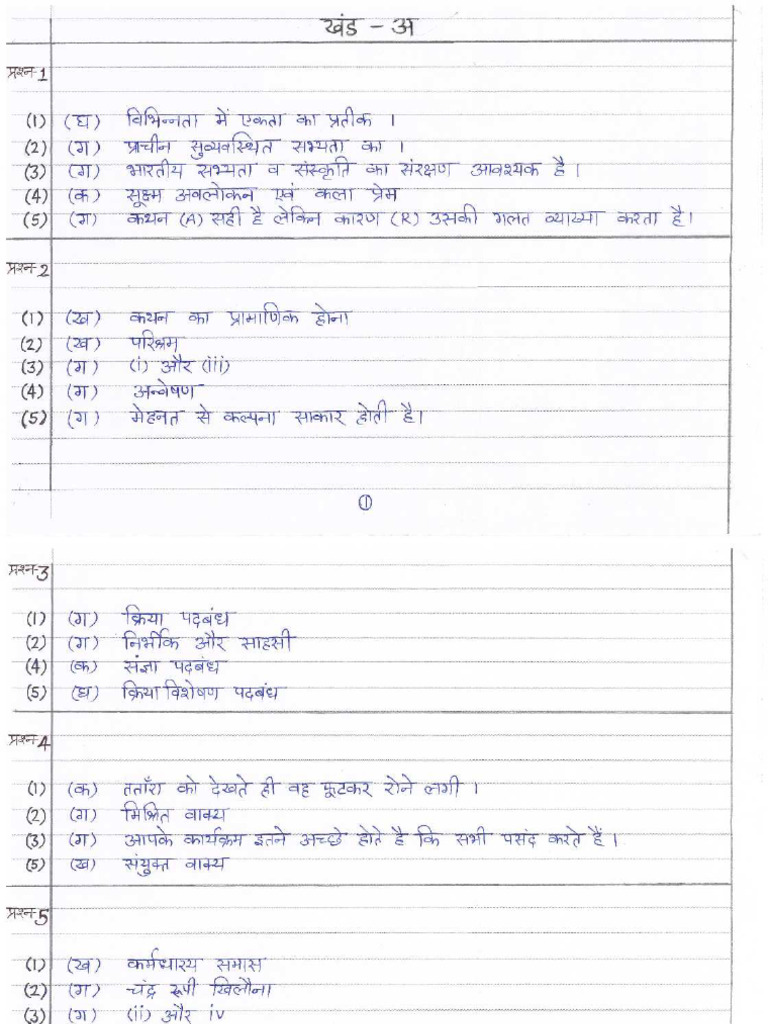 खंड - अ
प्रश्न-1
(1) (घ) विभिन्नता में एकता का प्रतीक ।
(2) (ग) प्राचीन सुव्यवस्थित सभ्यता का ।
(3) (ग) भारतीय सभ्यता व संस्कृति का संरक्षण आवश्यक है।
(4) (क) सूक्ष्म अवलोकन एवं कला प्रेम
(5) (ग) कथन (A) सही है लेकिन कारण (R) उसकी गलत व्याख्या करता है।
प्रश्न-2
(1) (ख) कथन का प्रामाणिक होना
(2) (ख) परिश्रम
(3) (ग) (i) और (iii)
(4) (ग) अन्वेषण
(5) (ग) मेहनत से कल्पना साकार होती है।
1
प्रश्न-3
(1) (ग) क्रिया पदबंध
(2) (ग) निर्भीक और साहसी
(4) (क) संज्ञा पदबंध
(5) (घ) क्रिया विशेषण पदबंध
प्रश्न-4
(1) (क) तताँरा को देखते ही वह फूटकर रोने लगी ।
(2) (ग) मिश्रित वाक्य
(3) (ग) आपके कार्यक्रम इतने अच्छे होते है कि सभी पसंद करते हैं ।
(5) (ख) संयुक्त वाक्य
प्रश्न-5
(1) (ख) कर्मधारय समास
(2) (ग) चंद्र रूपी खिलौना
(3) (ग) (ii) और iv